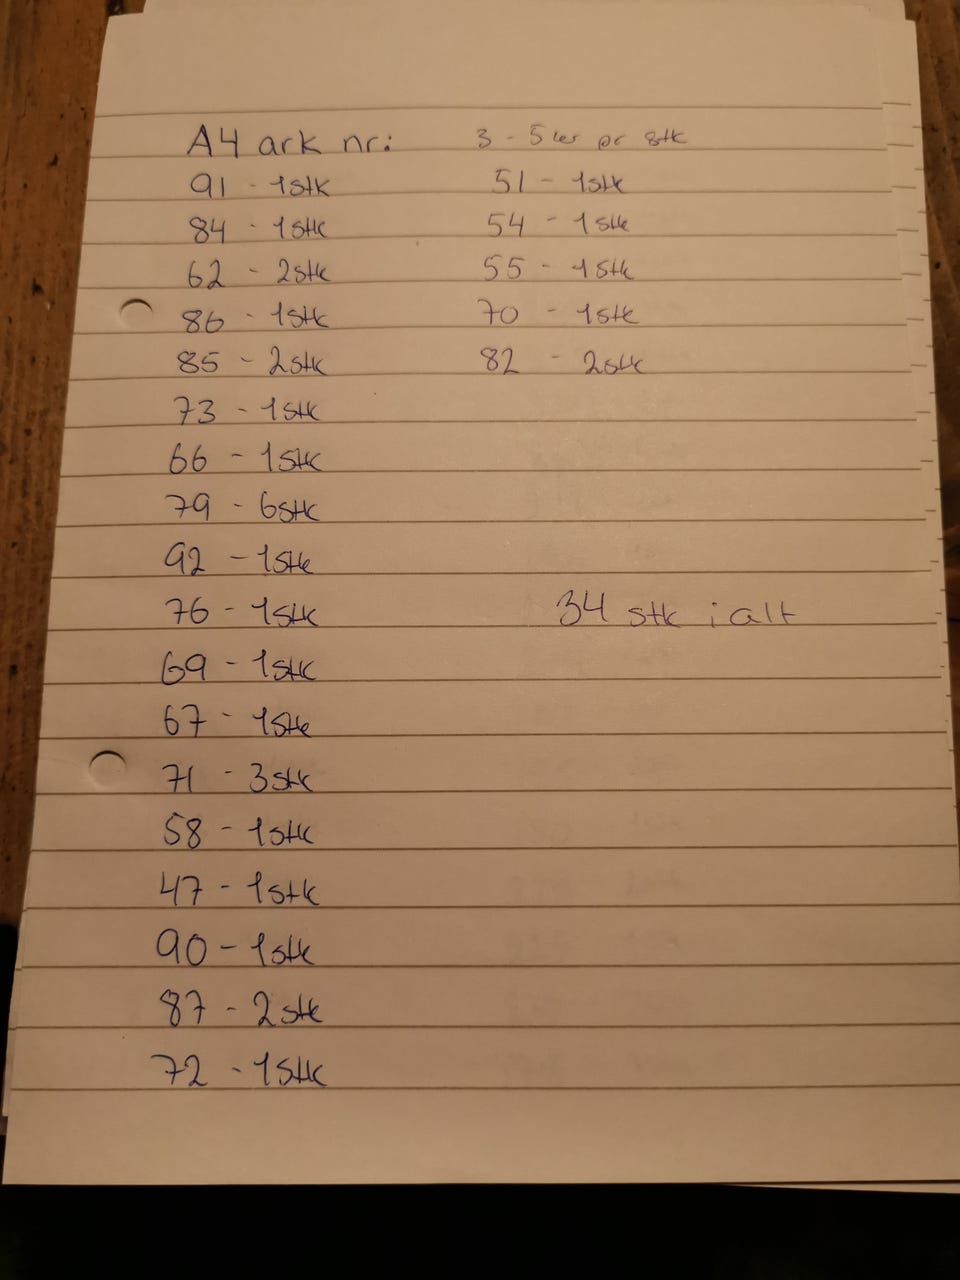 A4 ark nr:
91 - 1stk
84 - 1stk
62 - 2stk
86 - 1stk
85 - 2stk
73 - 1stk
66 - 1stk
79 - 6stk
92 - 1stk
76 - 1stk
69 - 1stk
67 - 1stk
71 - 3stk
58 - 1stk
47 - 1stk
90 - 1stk
87 - 2stk
72 - 1stk
3 - 5 pr stk
51 - 1stk
54 - 1stk
55 - 1stk
70 - 1stk
82 - 2stk
34 stk i alt